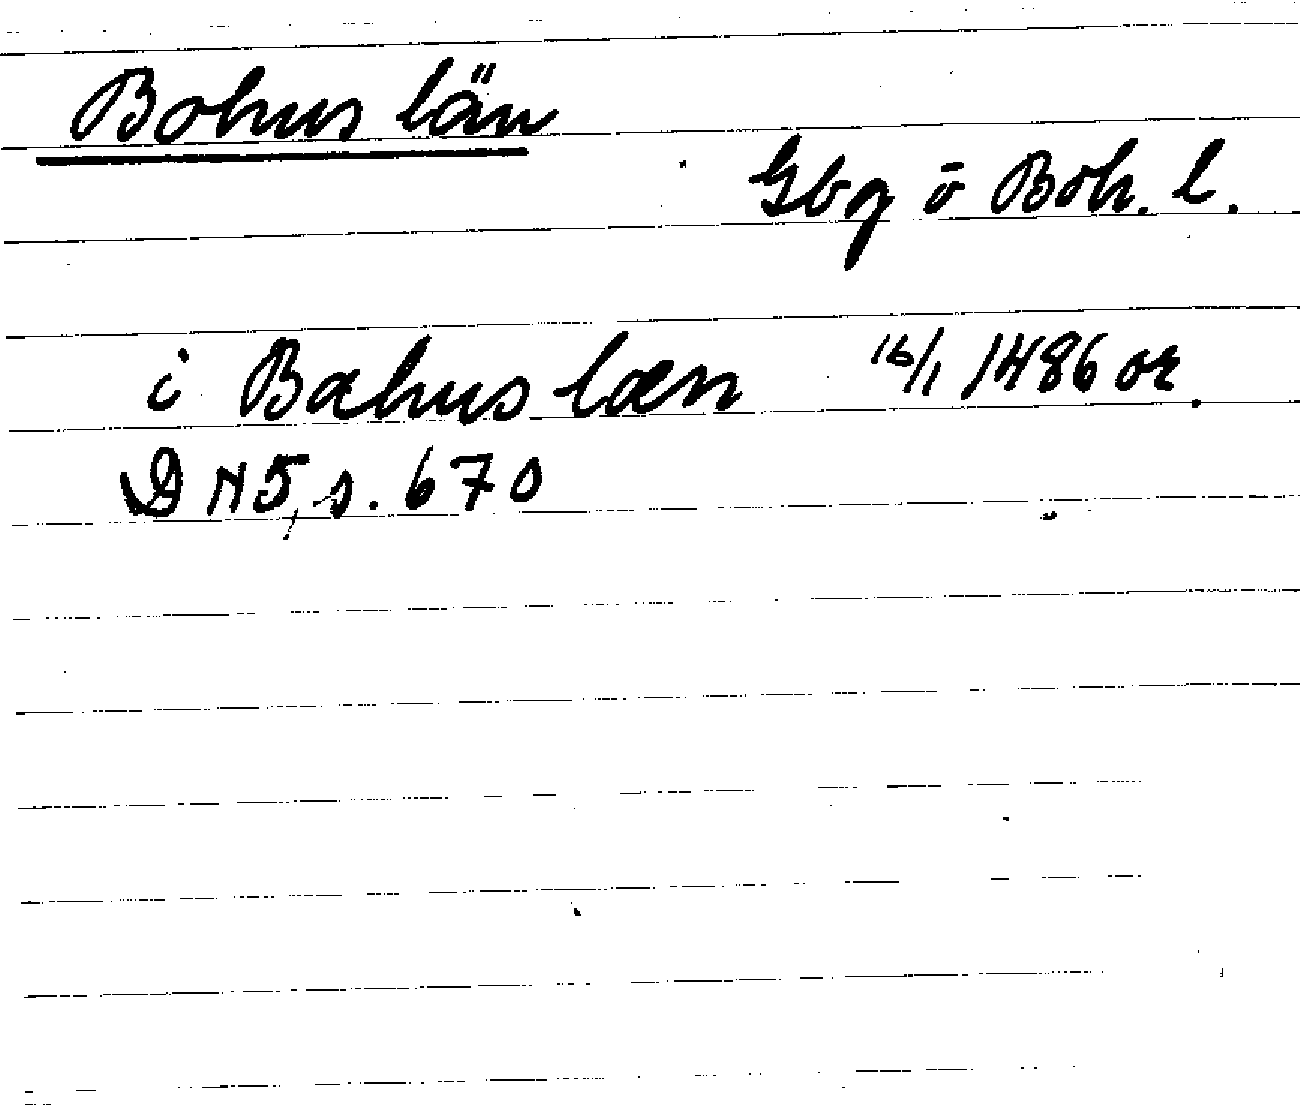 Bohus län
Gbg o Boh. l.
i Bahus læn 16/1 1486 or.
DN 5, s. 670